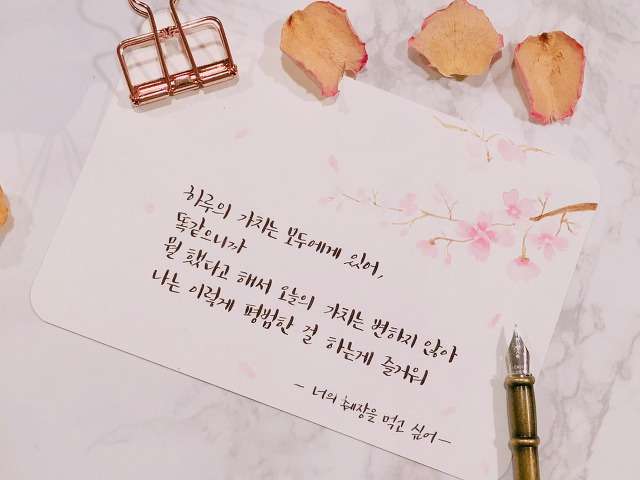 하루의 가치는 모두에게 있어,
똑같으니까
뭘 했다고 해서 오늘의 가치는 변하지 않아
나는 이렇게 평범한 걸 하는게 즐거워
- 너의 췌장을 먹고 싶어 -